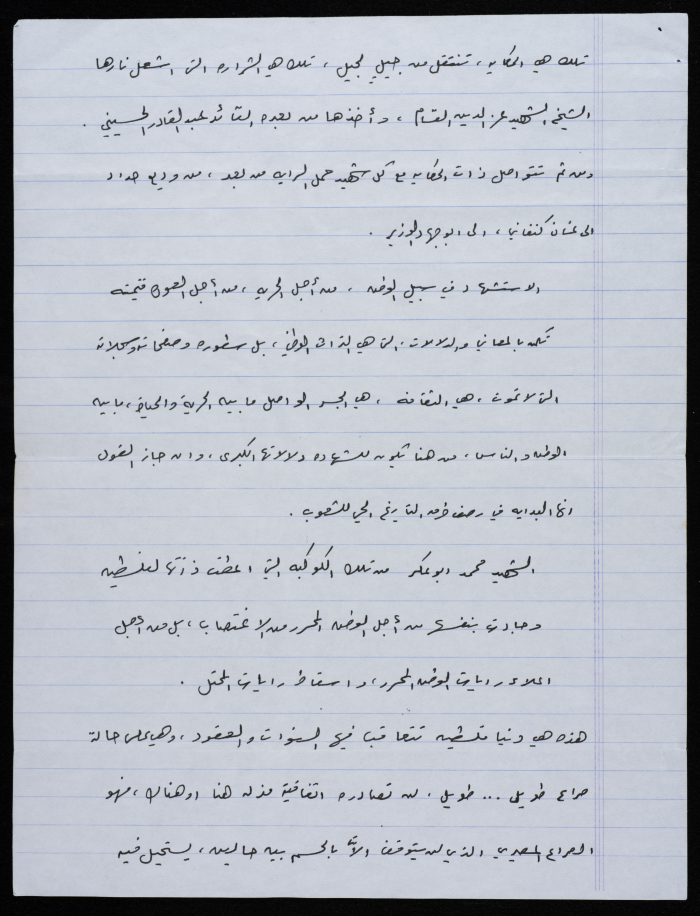 تلك هي الحكايه ، تنتقل من جيل لجيل ، تلك هي الشراره التي اشعل نارها
الشيخ الشهيد عز الدين القسام ، وأخذها من بعده القائد عبد القادر الحسيني .
ومن ثم تتواصل ذات الحكايه مع كل شهيد حمل الرايه من بعد ، من وديع حداد
الى غسان كنفاني ، الى ابو جهاد الوزير .
الاستشهاد في سبيل الوطن ، من أجل الحريه ، من أجل العوده قيمته
تكمن بالمعاني والدلالات ، التي هي التراث الوطني ، بل سطوره وصفحاته وسجلاته
التي لا تموت ، هي الثقافه ، هي الجسر الواصل ما بين الحرية والحياة ، ما بين
الوطن والناس ، من هنا تكون للشهاده دلالاتها الكبرى ، وان جاز القول
انها البدايه في رصف التاريخ الحي للشعوب .
الشهيد محمد ابو عكر من تلك الكوكبه التي اعطت ذاتها لفلسطين
وجادت بنفسها من أجل الوطن المحرر من الاغتصاب ، بل من أجل
اعلاء رايات الوطن المحرر ، واسقاط رايات المحتل .
هذه هي دنيا فلسطين تتعاقب فيها السنوات والعقود ، وهي على حالة
صراع طويل ... طويل ، لن تصادره اتفاقية مذله هنا او هناك ، فهو
الصراع المصيري الذي لن يتوقف الاّ بالحسم بين حالين ، يستحيل فيه